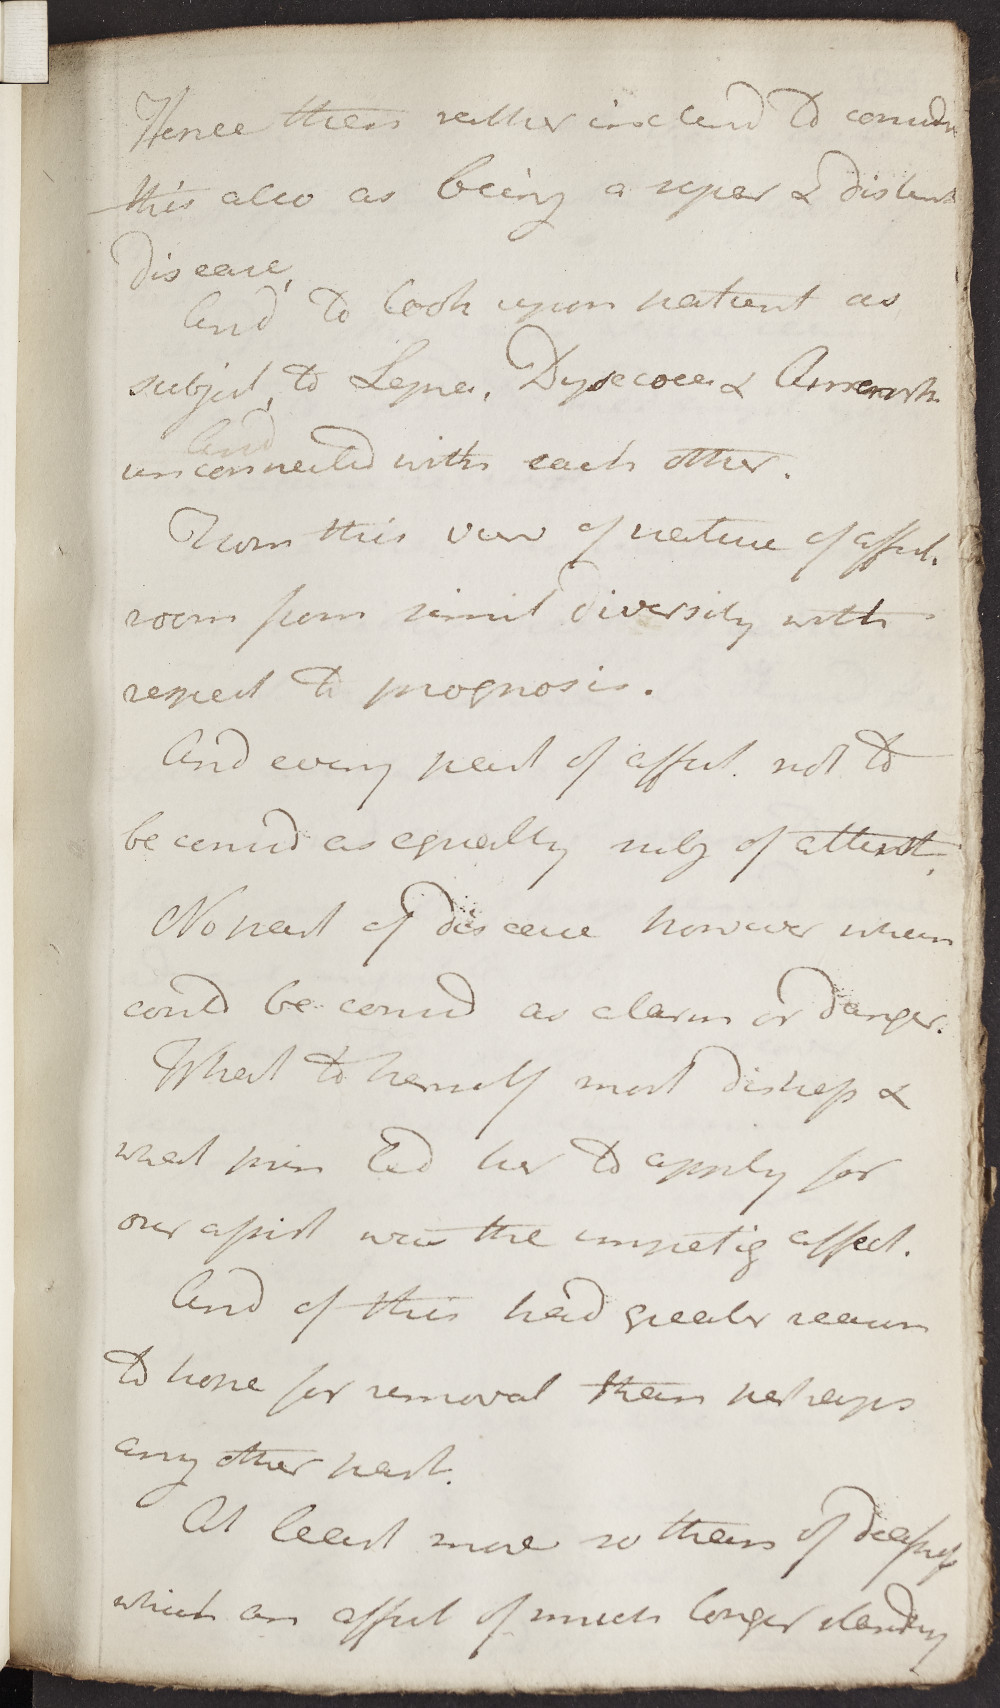 Hence then rather inclend to consider
this also as being a separ & distinct
disease,
And to look upon patient as
subject, to Lepra, Dysecoea & Amenorrh
unconnected with each other.
From this view of nature of affect.
room from simil diversity with
respect to prognosis.
And every part of affect. not to
be consid as equally subj of attent,
No part of disease however when
could be consid as alarm or danger.
What to herself most distress &
what prin led her to apply for
our assist was the impetig affect.
And of this had greater reason
to hope for removal than perhaps
any other part.
At least more so than of deafness
which an affect of much longer standing